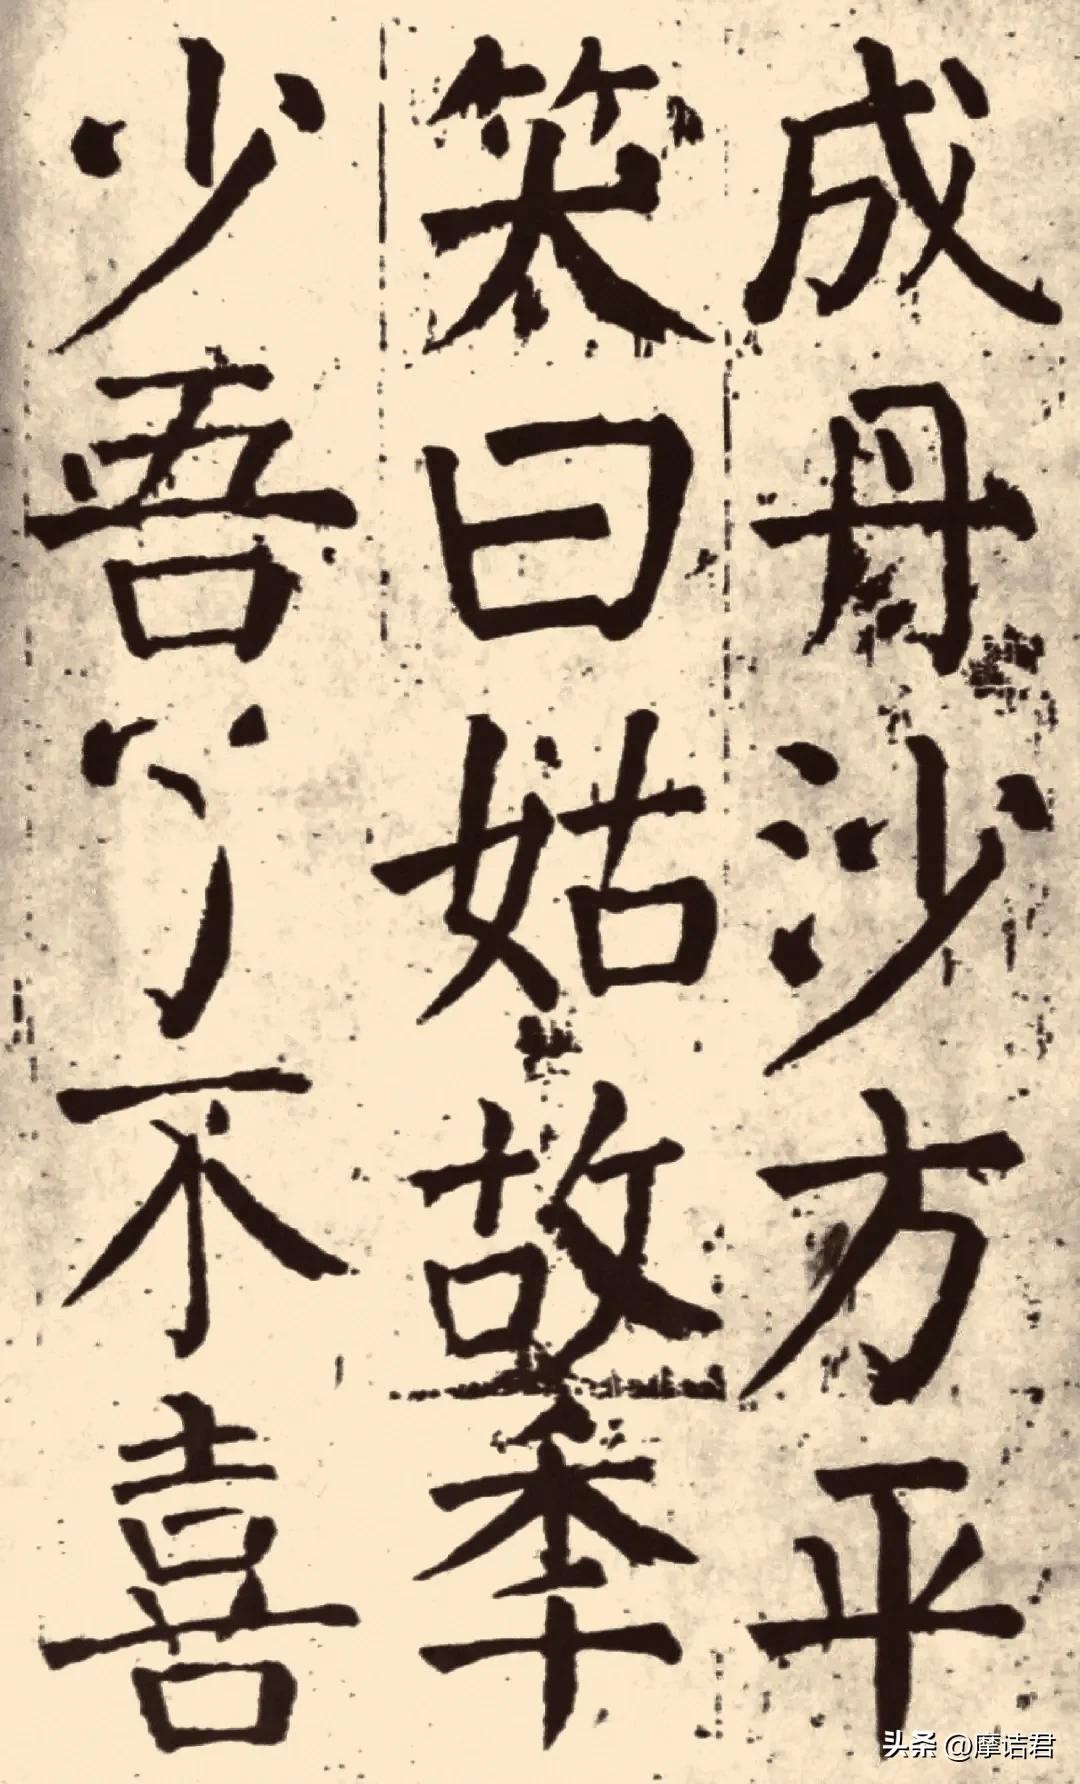 成丹沙方平
笑曰姑故秊
少吾了不喜
头条 @摩诘君